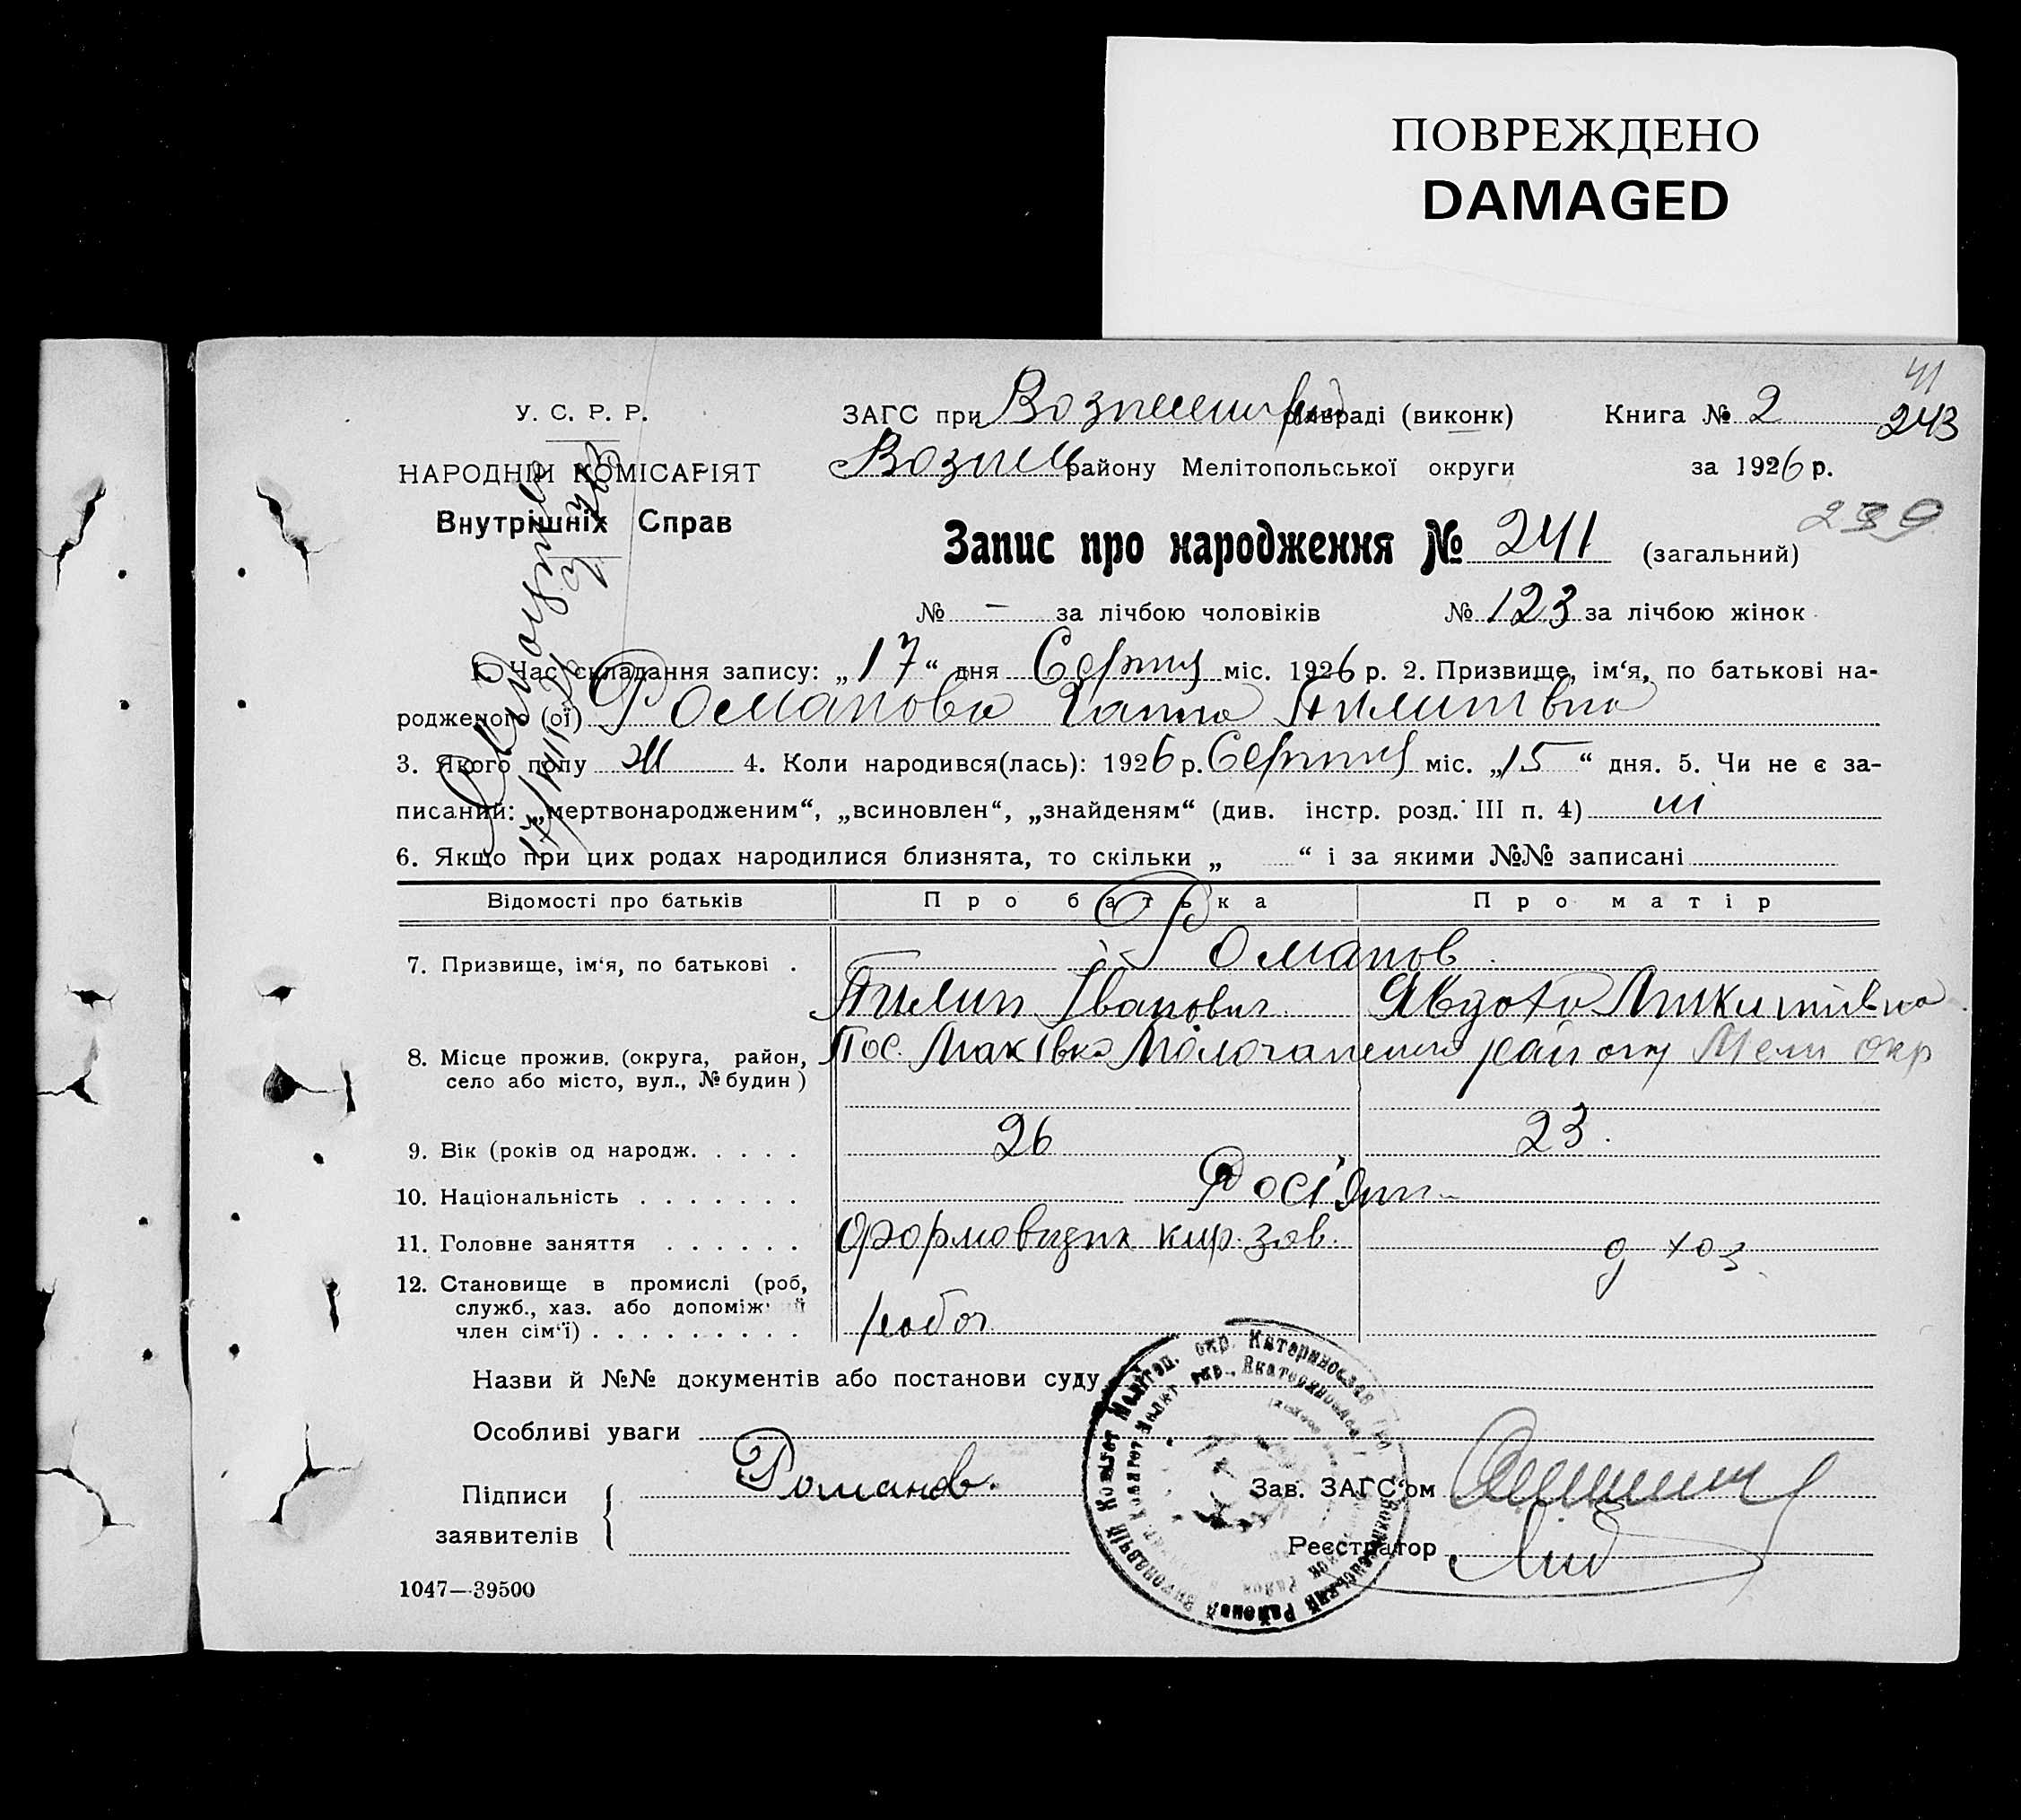 ПОВРЕЖДЕНО
DAMAGED
41
У. С. Р. Р.
ЗАГС при райвраді (виконк) Книга № 2 243
НАРОДНІЙ КОМІСАРІЯТ
Вознес району Мелітопольської округи за 1926 р.
Внутрішніх Справ
239
Запис про народження № 241 (загальний)
№ – за лічбою чоловіків № 123 за лічбою жінок
1. Час складання запису: „17“ дня Серпня міс. 1926 р. 2. Призвище, ім‘я, по батькові на-
родженого (ої) Романова Ганна Пилипівна
3. Якого полу Ж 4. Коли народився(лась): 1926 р. Серпня міс. „15“ дня. 5. Чи не є за-
писаний: „мертвонародженим“, „всиновлен“, „знайденям“ (див. інстр. розд. III п. 4) ні
6. Якщо при цих родах народилися близнята, то скільки „ “ і за якими №№ записані
Відомості про батьків Про батька Про матір
7. Призвище, ім‘я, по батькові . Романов
Пилип Іванович Явдоха Микитівна
8. Місце прожив. (округа, район, село або місто, вул., № будин) Пос. Маківка району Мели окр
9. Вік (років од народж. . . . . 26 23
10. Національність . . . . . . . Росіяни
11. Головне заняття . . . . . . формовщик кир. зав. д хоз
12. Становище в промислі (роб,
служб., хаз. або допоміжний
член сім‘ї) . . . . . . . . . робоч
Назви й №№ документів або постанови суду
Особливі уваги
Підписи
заявителів
Романов.
Зав. ЗАГС‘ом
Реєстратор
1047—39500